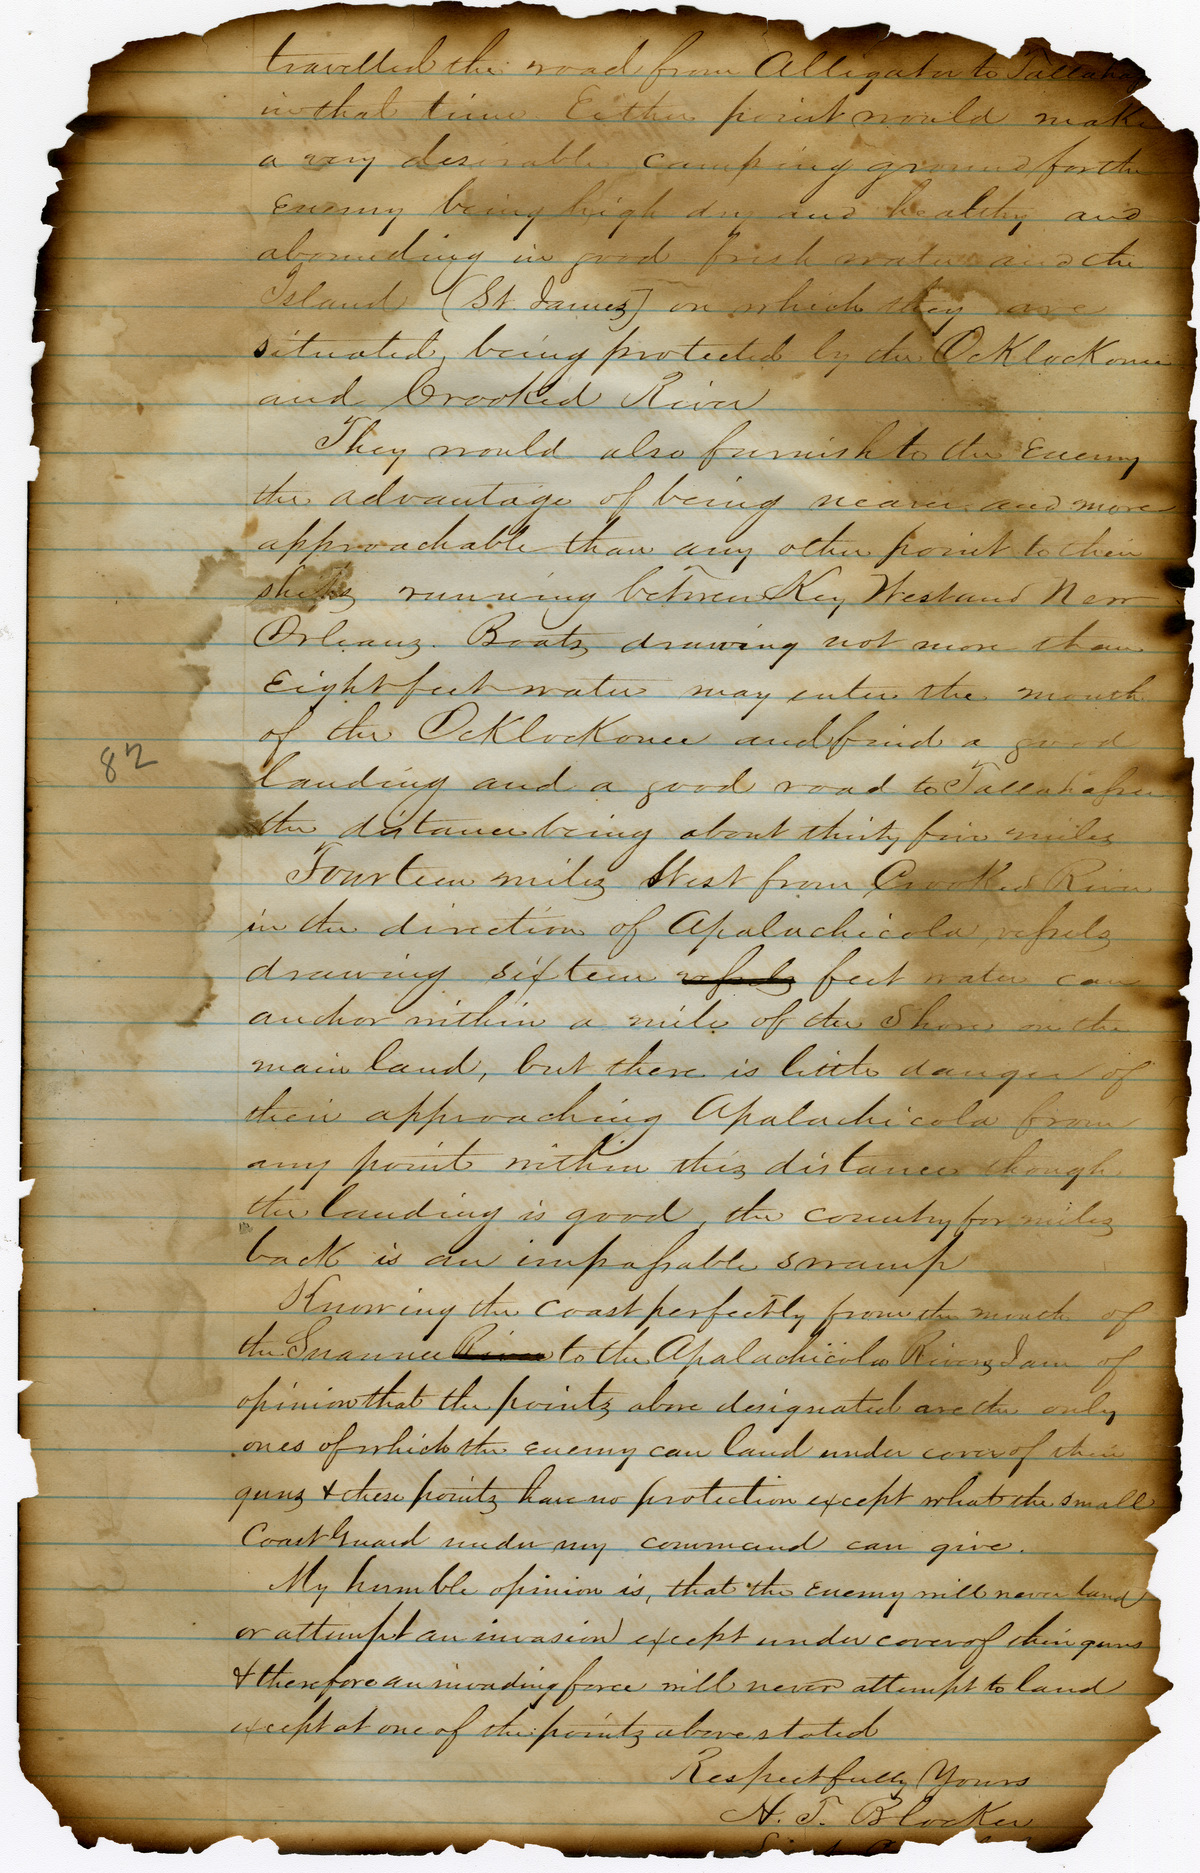 travelled the road from Alligator to Tallahas
in that time. Either point would make
a very desirable camping ground for the
Enemy being high dry and healthy and
abounding in good fresh water and the
Island (St. James) on which they are
situated, being protected by the Ocklockonee
and Crooked River
They would also furnish to the Enemy
the advantage of being nearer and more
approachable than any other point to their
ships running between Key West and New
Orleans. Boats drawing not more than
Eight feet water may enter the mouth
of the Ocklockonee and find a good
landing and a good road to Tallahassee
the distance being about thirty five miles
Fourteen miles West from Crooked River
in the direction of Apalachicola, vessels
drawing sixteen vessels feet water can
anchor within a mile of the Shore on the
main land, but there is little danger of
their approaching Apalachicola from
any point within this distance though
the landing is good, the country for miles
back is an impassable swamp
82
Knowing the Coast perfectly from the mouth of
the Suannee River to the Apalachicola Rivers I am of
opinion that the points above designated are the only
ones of which the enemy can land under cover of their
guns & these points have no protection except what the small
Coast Guard under my command can give.
My humble opinion is, that the Enemy will never land
or attempt an invasion except under cover of their guns
& therefore an invading force will never attempt to land
except at one of the points above stated
Respectfully Yours
H. T. Blocker